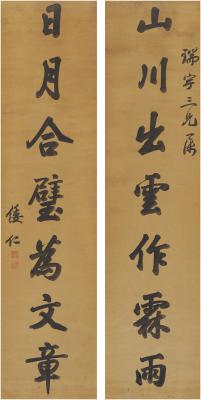 瑞宇三兄屬
山川出雲作霖雨
日月合璧為文章
倭仁